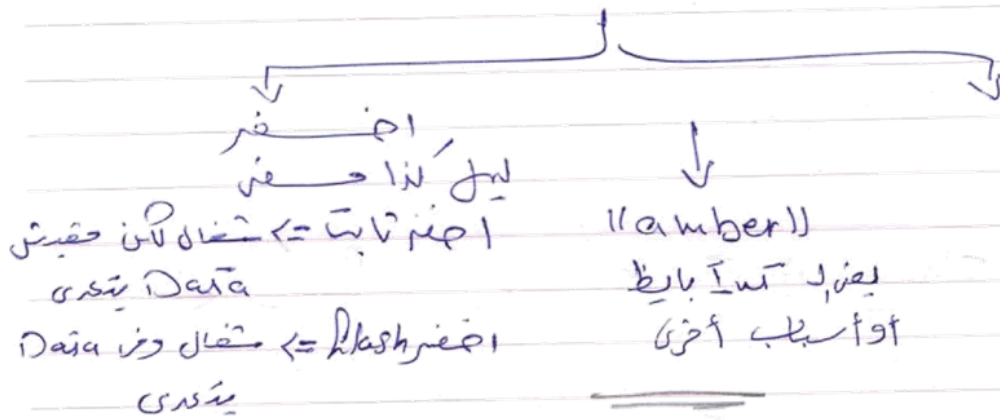 اخضر
ليه كذا معنى
اخضر ثابت => شغال لكن مفيش
Data بتعدى
اخضر flash => شغال وفى Data
بتعدى
"amber"
يعنى بايظ
أو أسباب أخرى